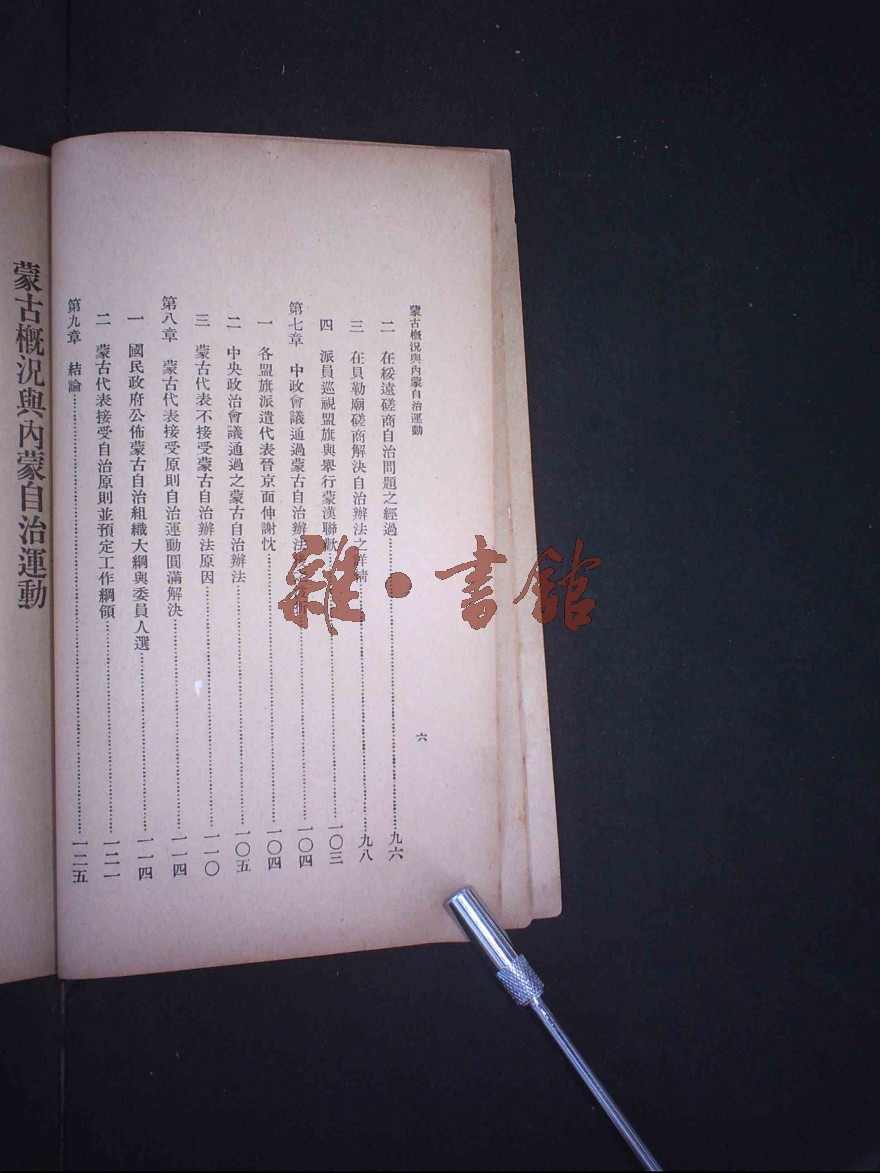 蒙古概況與內蒙自治運動
六
二 在綏遠磋商自治問題之經過……九六
三 在貝勒廟磋商解決自治辦法之詳情……九八
四 派員巡視盟旗與舉行蒙漢聯歡……一〇三
第七章 中政會議通過蒙古自治辦法……一〇四
一 各盟旗派遣代表晉京面伸謝忱……一〇四
二 中央政治會議通過之蒙古自治辦法……一〇五
三 蒙古代表不接受蒙古自治辦法原因……一一〇
第八章 蒙古代表接受原則自治運動圓滿解決……一一四
一 國民政府公佈蒙古自治組織大綱與委員人選……一一四
二 蒙古代表接受自治原則並預定工作綱領……一二一
第九章 結論……一二五
蒙古概況與內蒙自治運動
雜·書館